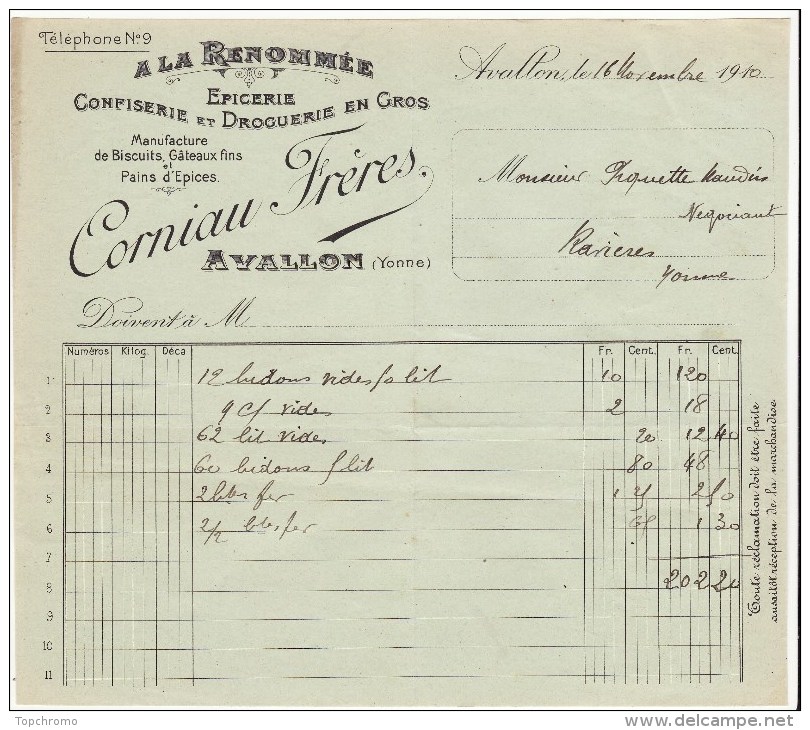 Téléphone No 9
A LA RENOMMÉE
EPICERIE
CONFISERIE ET DROGUERIE EN GROS
Manufacture
de Biscuits, Gâteaux fins
et
Pains d'Epices.
Corniau Frères.
AVALLON (Yonne)
Avallon, le 16 Novembre 1910
Monsieur Piquette
Négociant
Ravières
Yonne
Doivent à M
Numéros Kilog. Déca Fr. Cent. Fr. Cent.
1 12 bidons vides lit 10 120
2 9 vides 2 18
3 62 lit vides 20 12 40
4 60 bidons lit 80 48
5 2 fer 1 25 2 50
6 2/2 fer 65 1 30
7
8 202 20
9
10
11
Toute réclamation doit être faite
aussitôt réception de la marchandise
Topchromo
www.delcampe.net